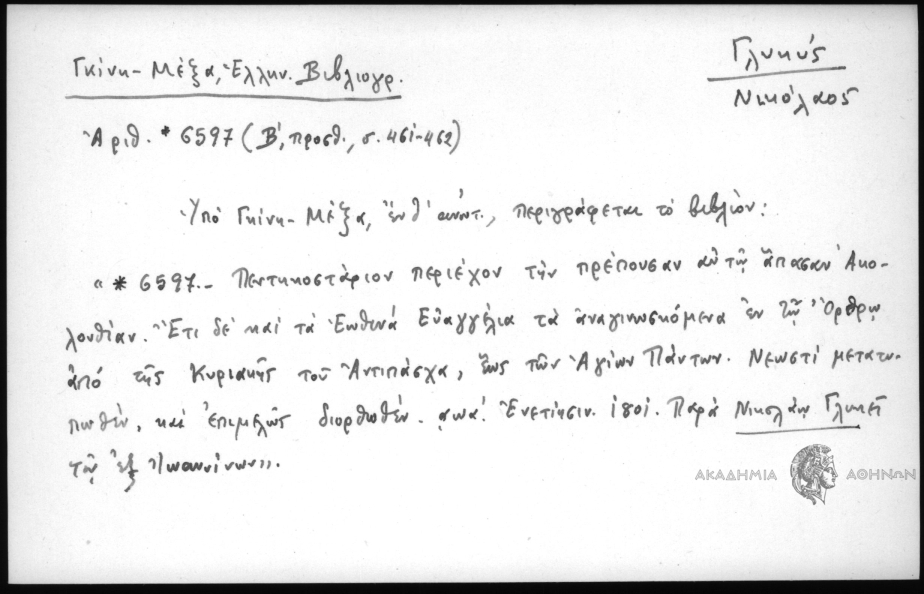 Γκίνη-Μέξα, Ἑλλην. Βιβλιογρ.
Γλυκύς
Νικόλαος
Ἀριθ. * 6597 (Β', προσθ., σ. 461-462)
Ὑπό Γκίνη-Μέξα, ἔνθ' ἀνωτ., περιγράφεται τό βιβλίον:
«* 6597.- Πεντηκοστάριον περιέχον τήν πρέπουσαν αὐτῷ ἅπασαν Ἀκο-
λουθίαν. Ἔτι δέ καί τά Ἑωθινά Εὐαγγέλια τά ἀναγινωσκόμενα ἐν τῷ Ὄρθρῳ
ἀπό τῆς Κυριακῆς τοῦ Ἀντιπάσχα, ἕως τῶν Ἁγίων Πάντων. Νεωστί μετατυ-
πωθέν, καί ἐπιμελῶς διορθωθέν. αωα'. Ἐνετίησιν. 1801. Παρά Νικολάῳ Γλυκεῖ
τῷ ἐξ Ἰωαννίνων».
ΑΚΑΔΗΜΙΑ ΑΘΗΝΩΝ